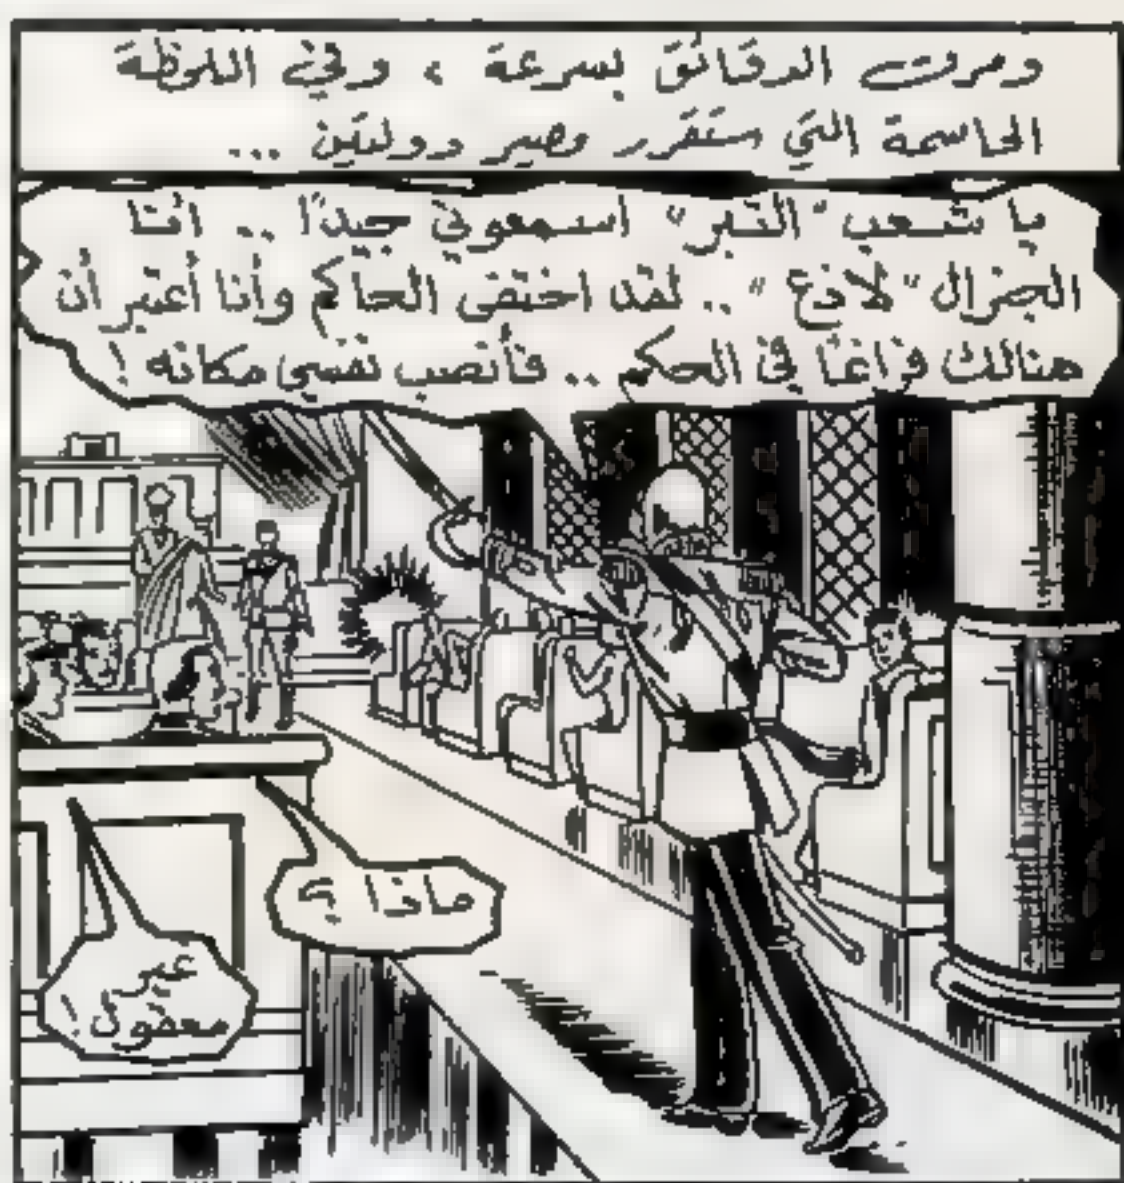 ومرت الدقائق بسرعة ، وفي اللحظة
الحاسمة التي ستقرر مصير دولتين ...
يا شعب "التبر" اسمعوني جيدًا .. أنا
الجنرال "لاذع" .. لقد اختفى الحاكم وأنا أعتبر أن
هنالك فراغًا في الحكم .. فأنصب نفسي مكانه !
ماذا ؟
غير
معقول !